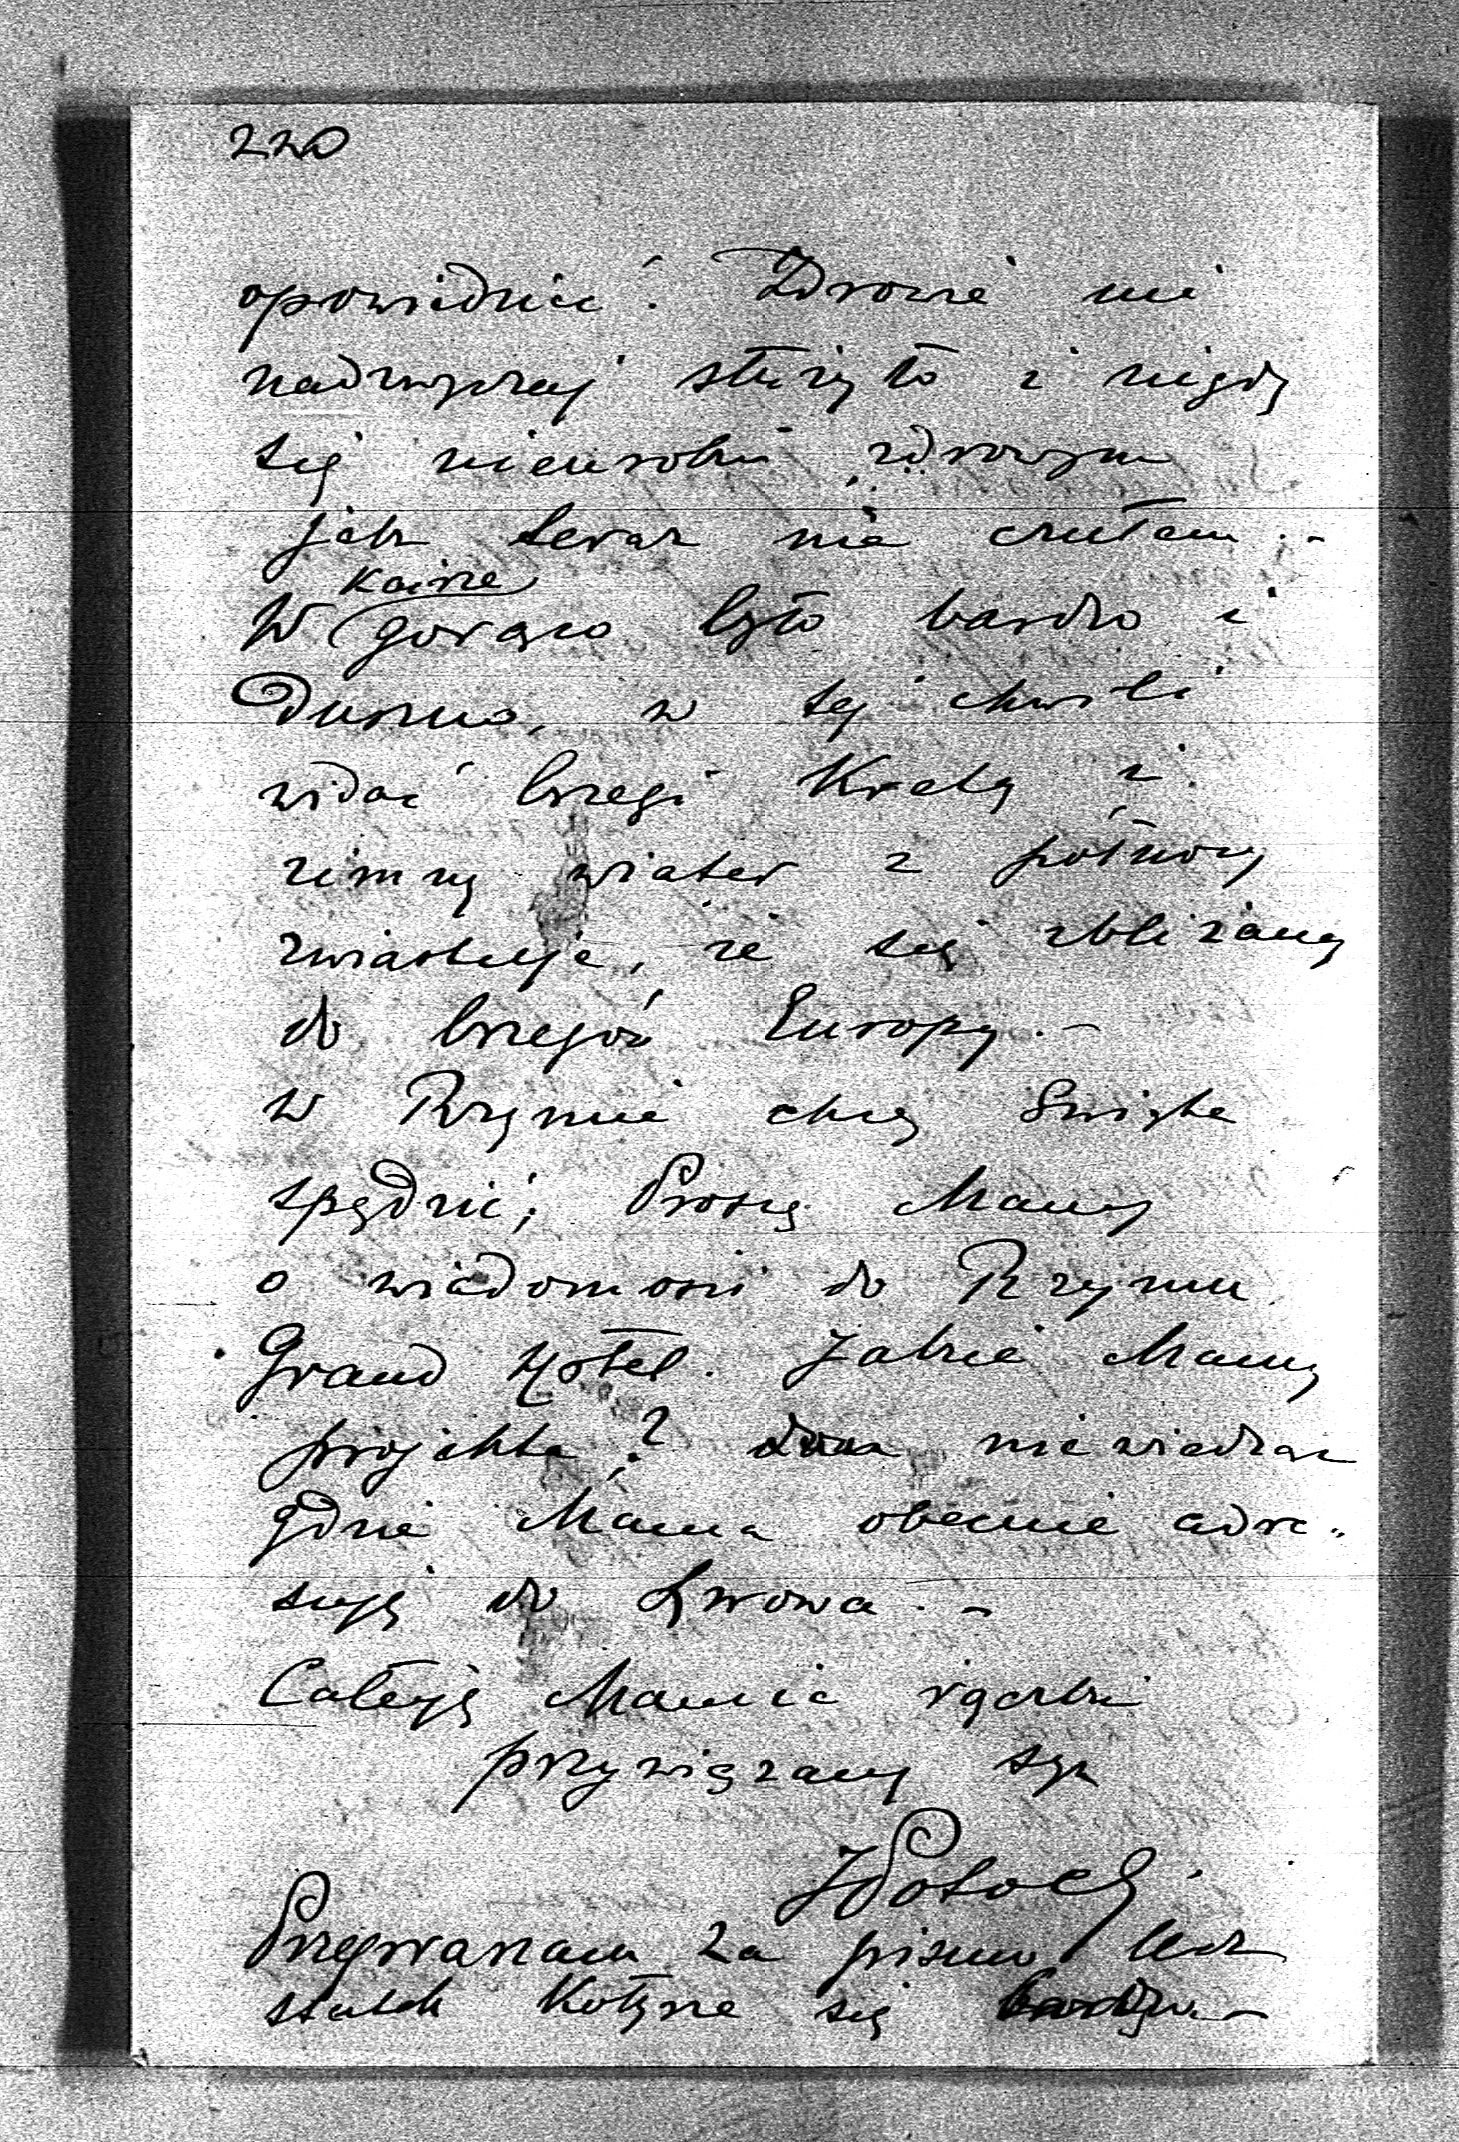 220
opowiedzieć. Zdrowie mi
nadzwyczaj służyło i nigdy
się zdrowym
jak teraz nie czułam. -
Kairze
W gorąco było bardzo i
Duszno, w tej chwili
widać brzegi Krety i
zimny wiater z północy
zwiastuje, że się zbliżamy
do brzegów Europy. -
w Rzymie chcę Święta
spędzić; Proszę Mamy
o wiadomości do Rzymu
Grand Hôtel. Jakie Mamy
projekta? nie wiedząc
gdzie Mama obecnie adre-
suję do Lwowa. -
Całuję Mamie rączki
przywiązany syn
JPotocki
Przepraszam za pismo lecz
statek kołysze się bardzo -